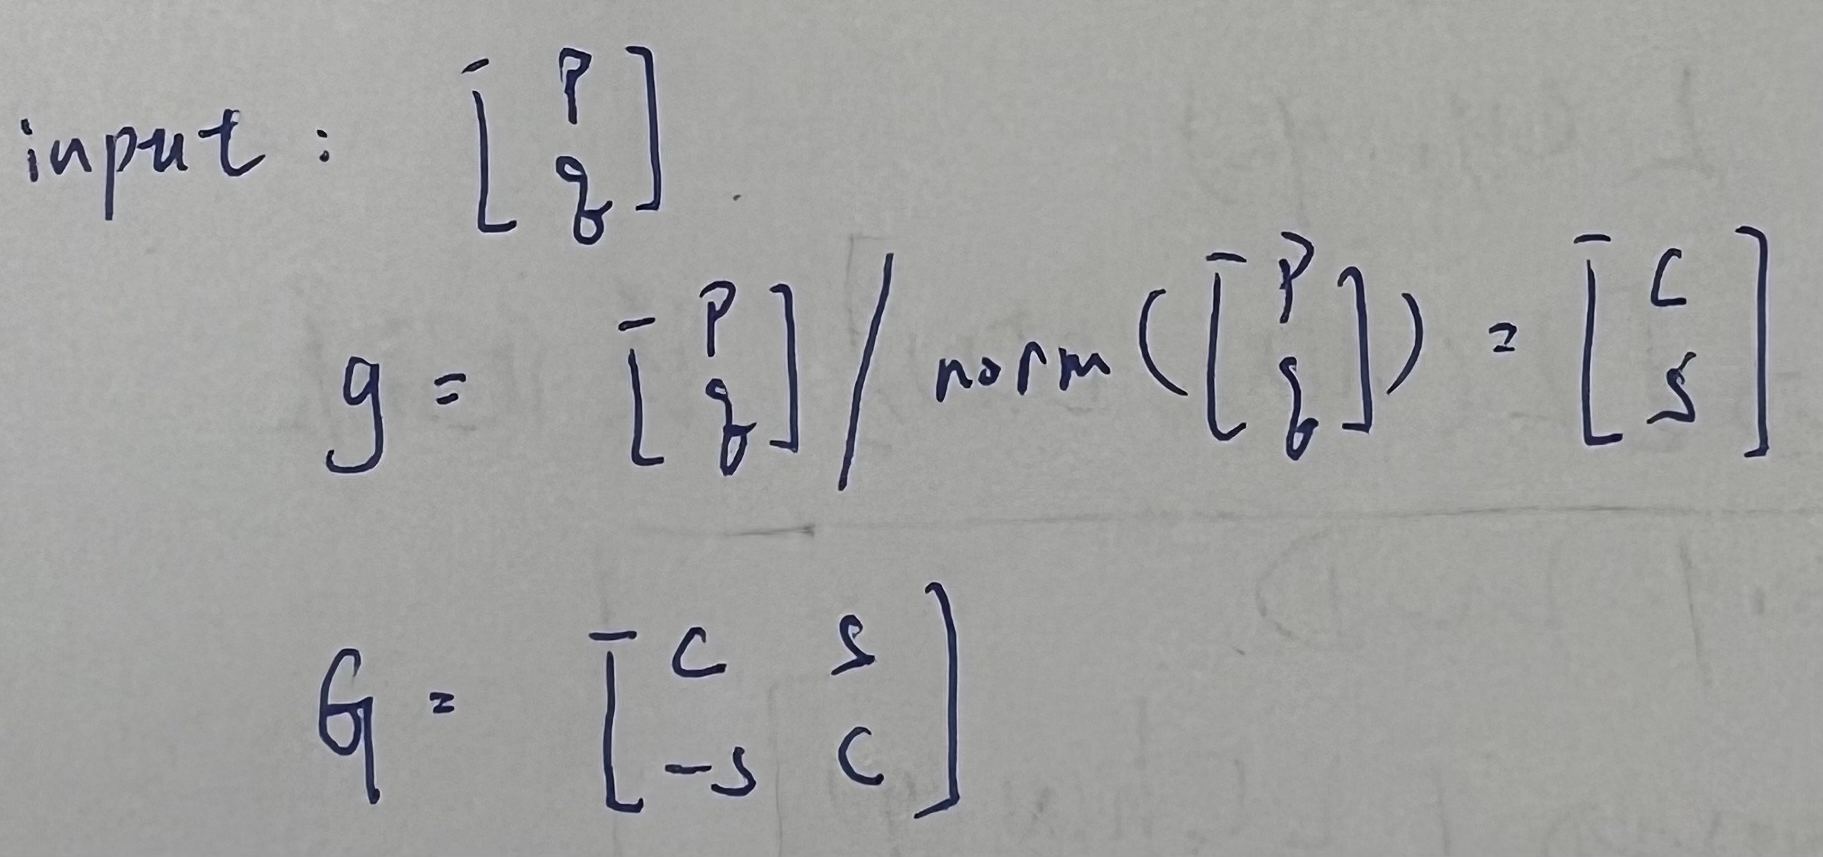 input : [ p
q ]
g = [ p
q ] / norm ( [ p
q ] ) = [ c
s ]
G = [ c s
-s c ]